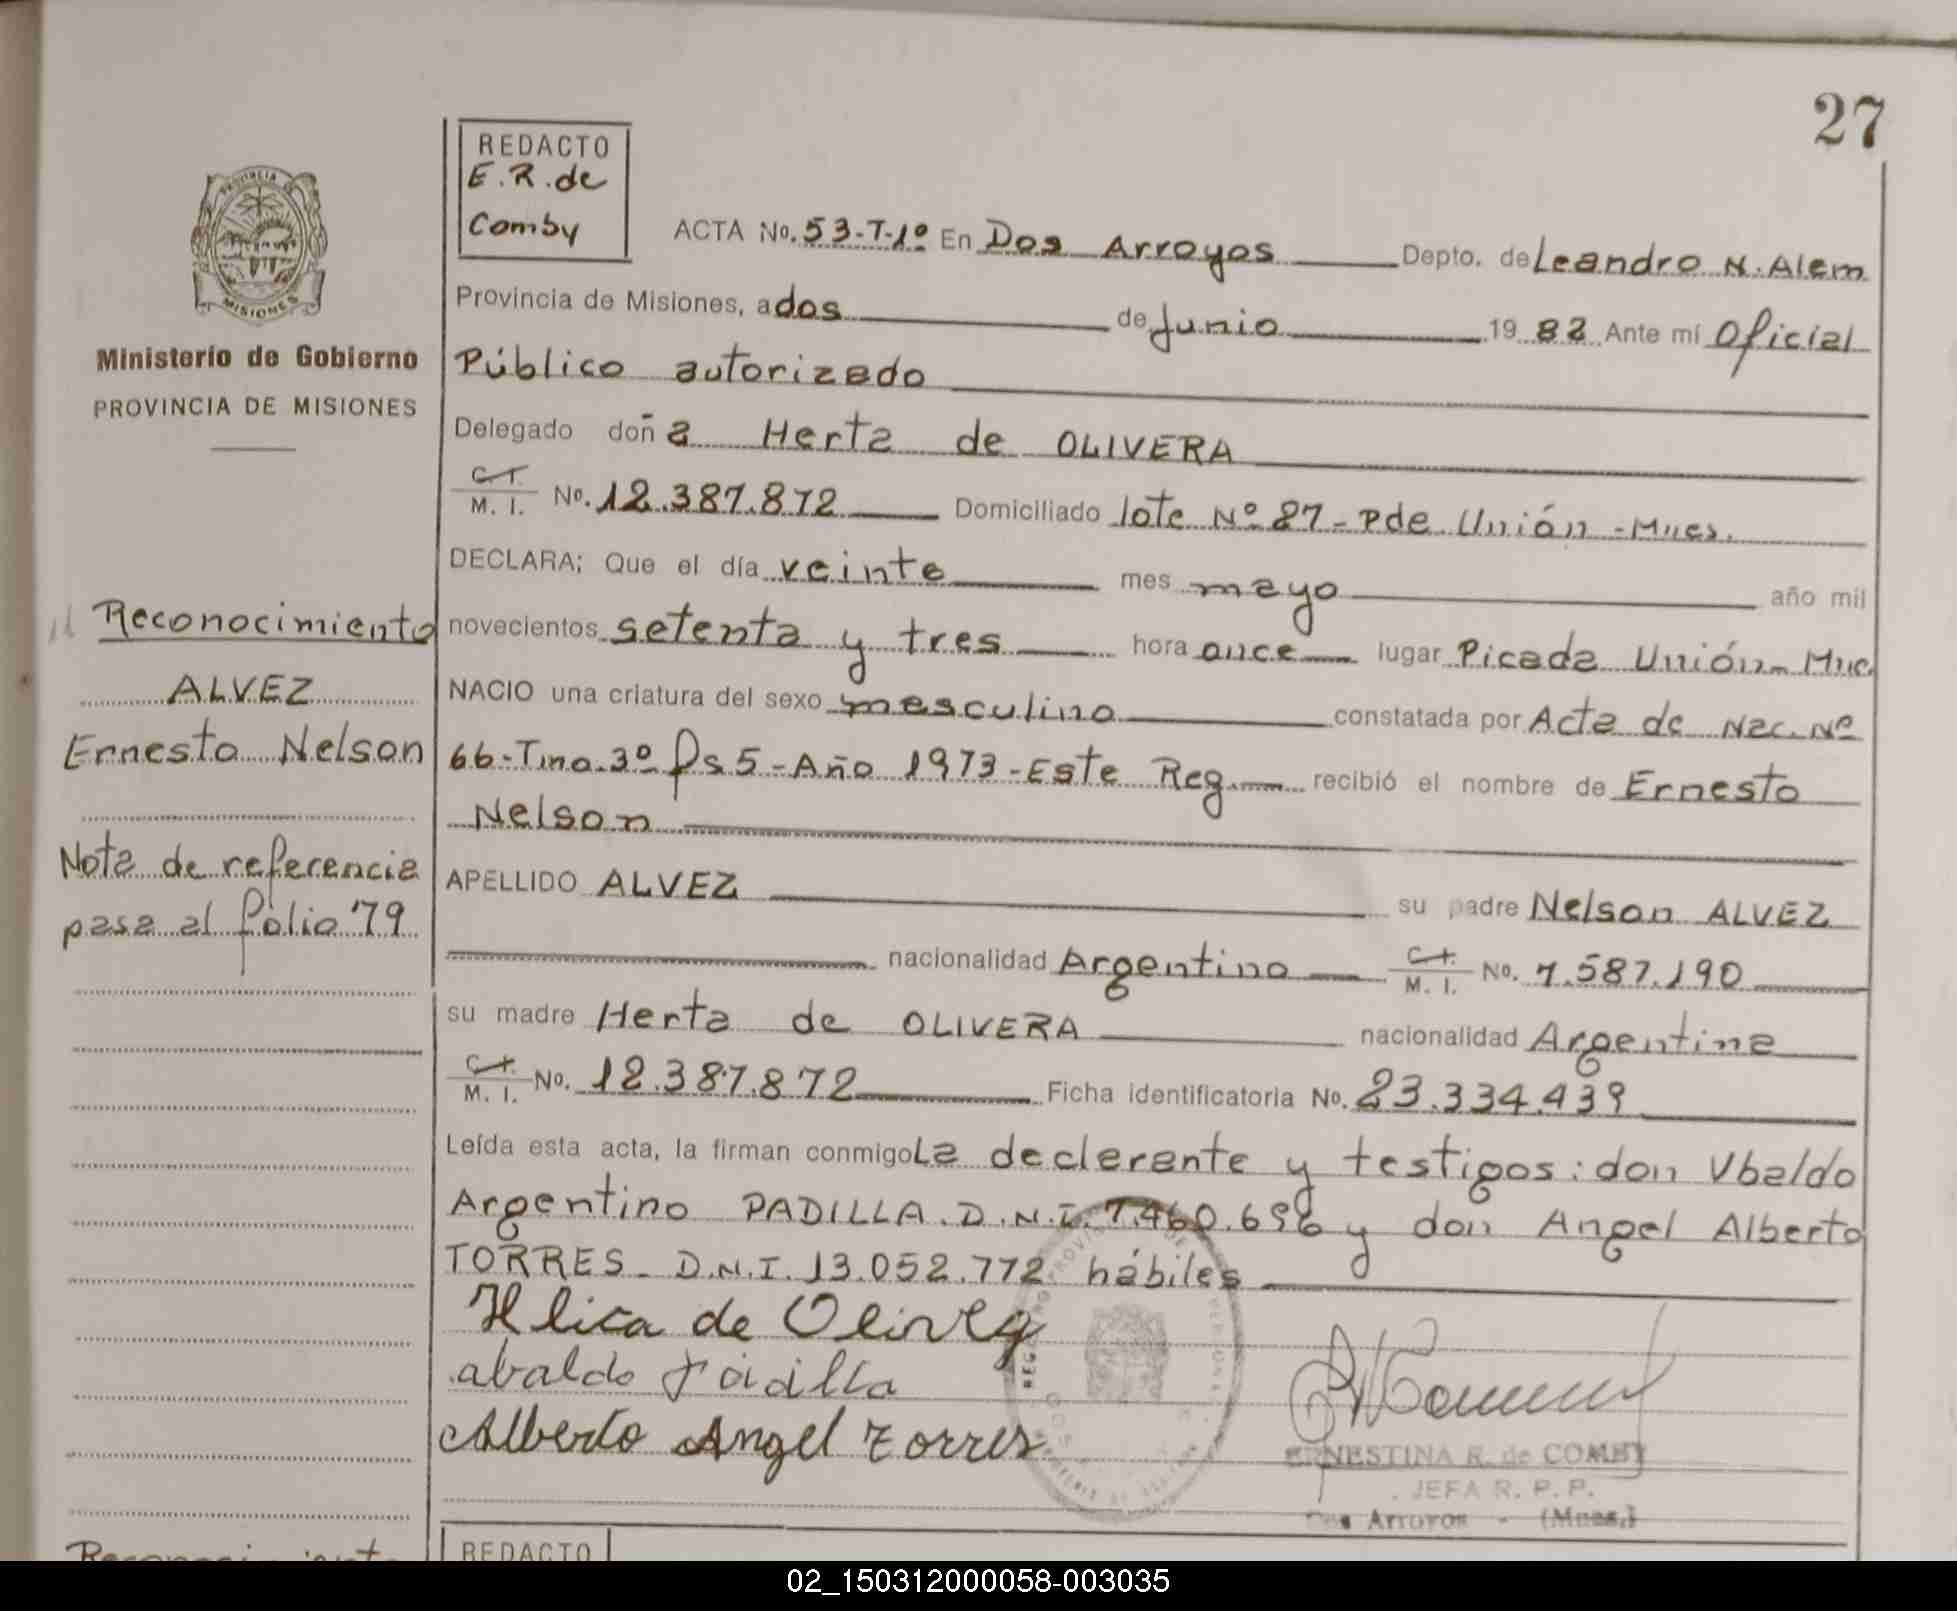 27
REDACTO
E.R.de
Comby
PROVINCIA DE
MISIONES
Ministerio de Gobierno
PROVINCIA DE MISIONES
ACTA No. 53-T-1º En Dos Arroyos Depto. de Leandro N. Alem
Provincia de Misiones, a dos de Junio 19 82 Ante mí Oficial
Público autorizado
Delegado doña Herta de OLIVERA
C.I.
M. I. No. 12.387.872 Domiciliado lote Nº 87-Pde Unión-Mnes.
DECLARA: Que el día veinte mes mayo año mil
novecientos setenta y tres hora once lugar Picada Unión-Mnes
NACIO una criatura del sexo masculino constatada por Acta de Nac. Nº
66-Tmo.3º Fs 5-Año 1973-Este Reg. recibió el nombre de Ernesto
Nelson
APELLIDO ALVEZ su padre Nelson ALVEZ
nacionalidad Argentino C.I.
M. I. No. 7.587.190
su madre Herta de OLIVERA nacionalidad Argentina
C.I.
M. I. No. 12.387.872 Ficha identificatoria No. 23.334.439
Leída esta acta, la firman conmigo La declarante y testigos: don Ubaldo
Argentino PADILLA. D.N.I. 7.460.696 y don Angel Alberto
TORRES- D.N.I. 13.052.772 hábiles
de
Padilla
Alberto Angel Torres
ERNESTINA R. de COMBY
JEFA R. P. P.
Dos Arroyos - (Mnes.)
Reconocimiento
ALVEZ
Ernesto Nelson
Nota de referencia
pasa al folio 79
Reconocimiento
REDACTO
02_150312000058-003035